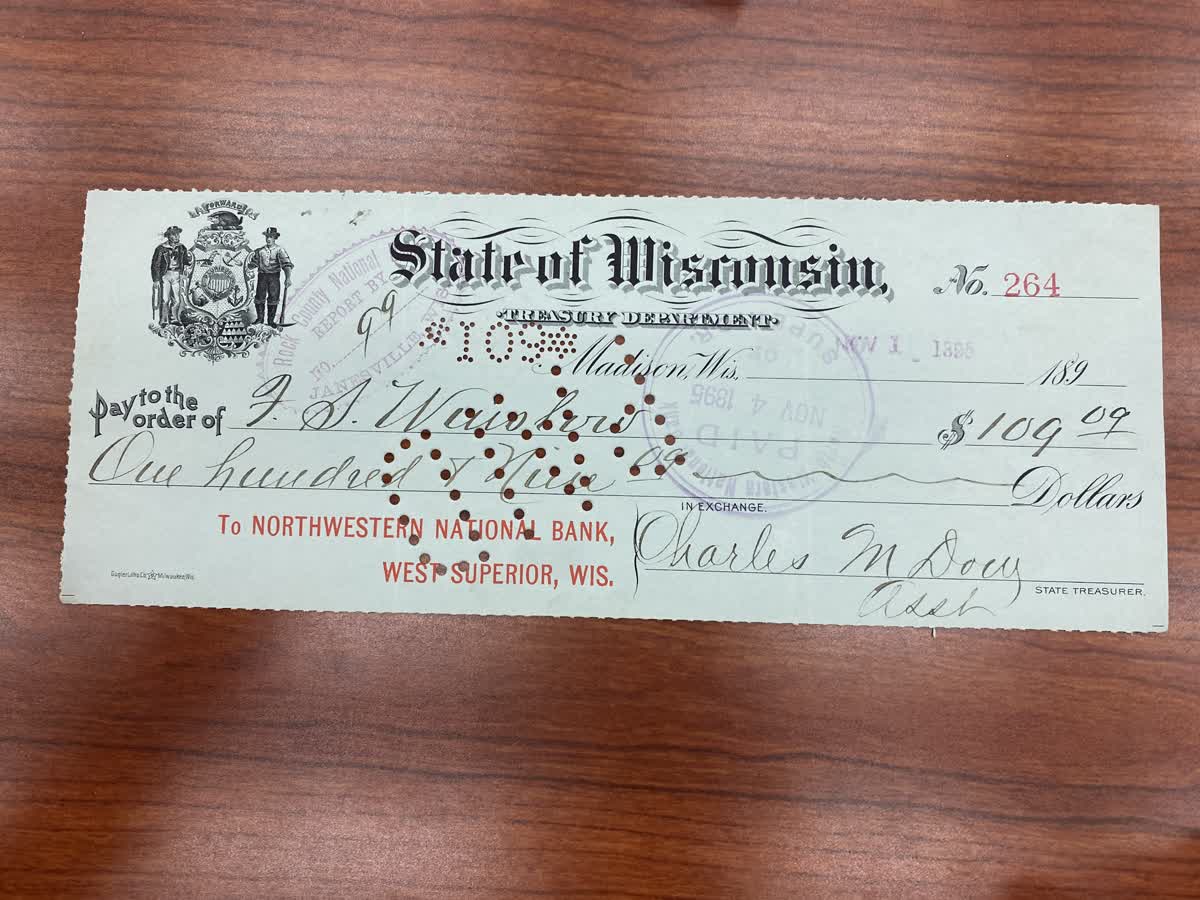 FORWARD
State of Wisconsin,
TREASURY DEPARTMENT
No. 264
Rock County National
REPORT BY
No. 99
JANESVILLE, WIS.
*109*
Madison, Wis. NOV 1 1895 189
PAID
NOV 4 1895
Pay to the order of F. S.
$109 09
One hundred & Nine 09 Dollars
IN EXCHANGE.
To NORTHWESTERN NATIONAL BANK,
WEST SUPERIOR, WIS.
Charles M Dow
Asst
STATE TREASURER.
Gugler Litho. Co. Milwaukee, Wis.